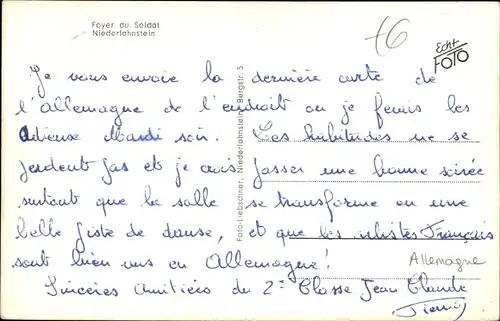 Foyer du Soldat
Niederlahnstein
Echt
FOTO
Je vous envoie la dernière carte de
l'allemagne de l'endroit ou je ferais les
adieux Mardi soir. Les habitudes ne se
perdent pas et je crois passer une bonne soirée
surtout que la salle se transforme en une
belle piste de danse, et que les Français
sont bien vus en Allemagne!
Allemagne
Sincères Amitiées du 2e Classe Jean Claude
Foto-Liebschner, Niederlahnstein, Bergstr. 5